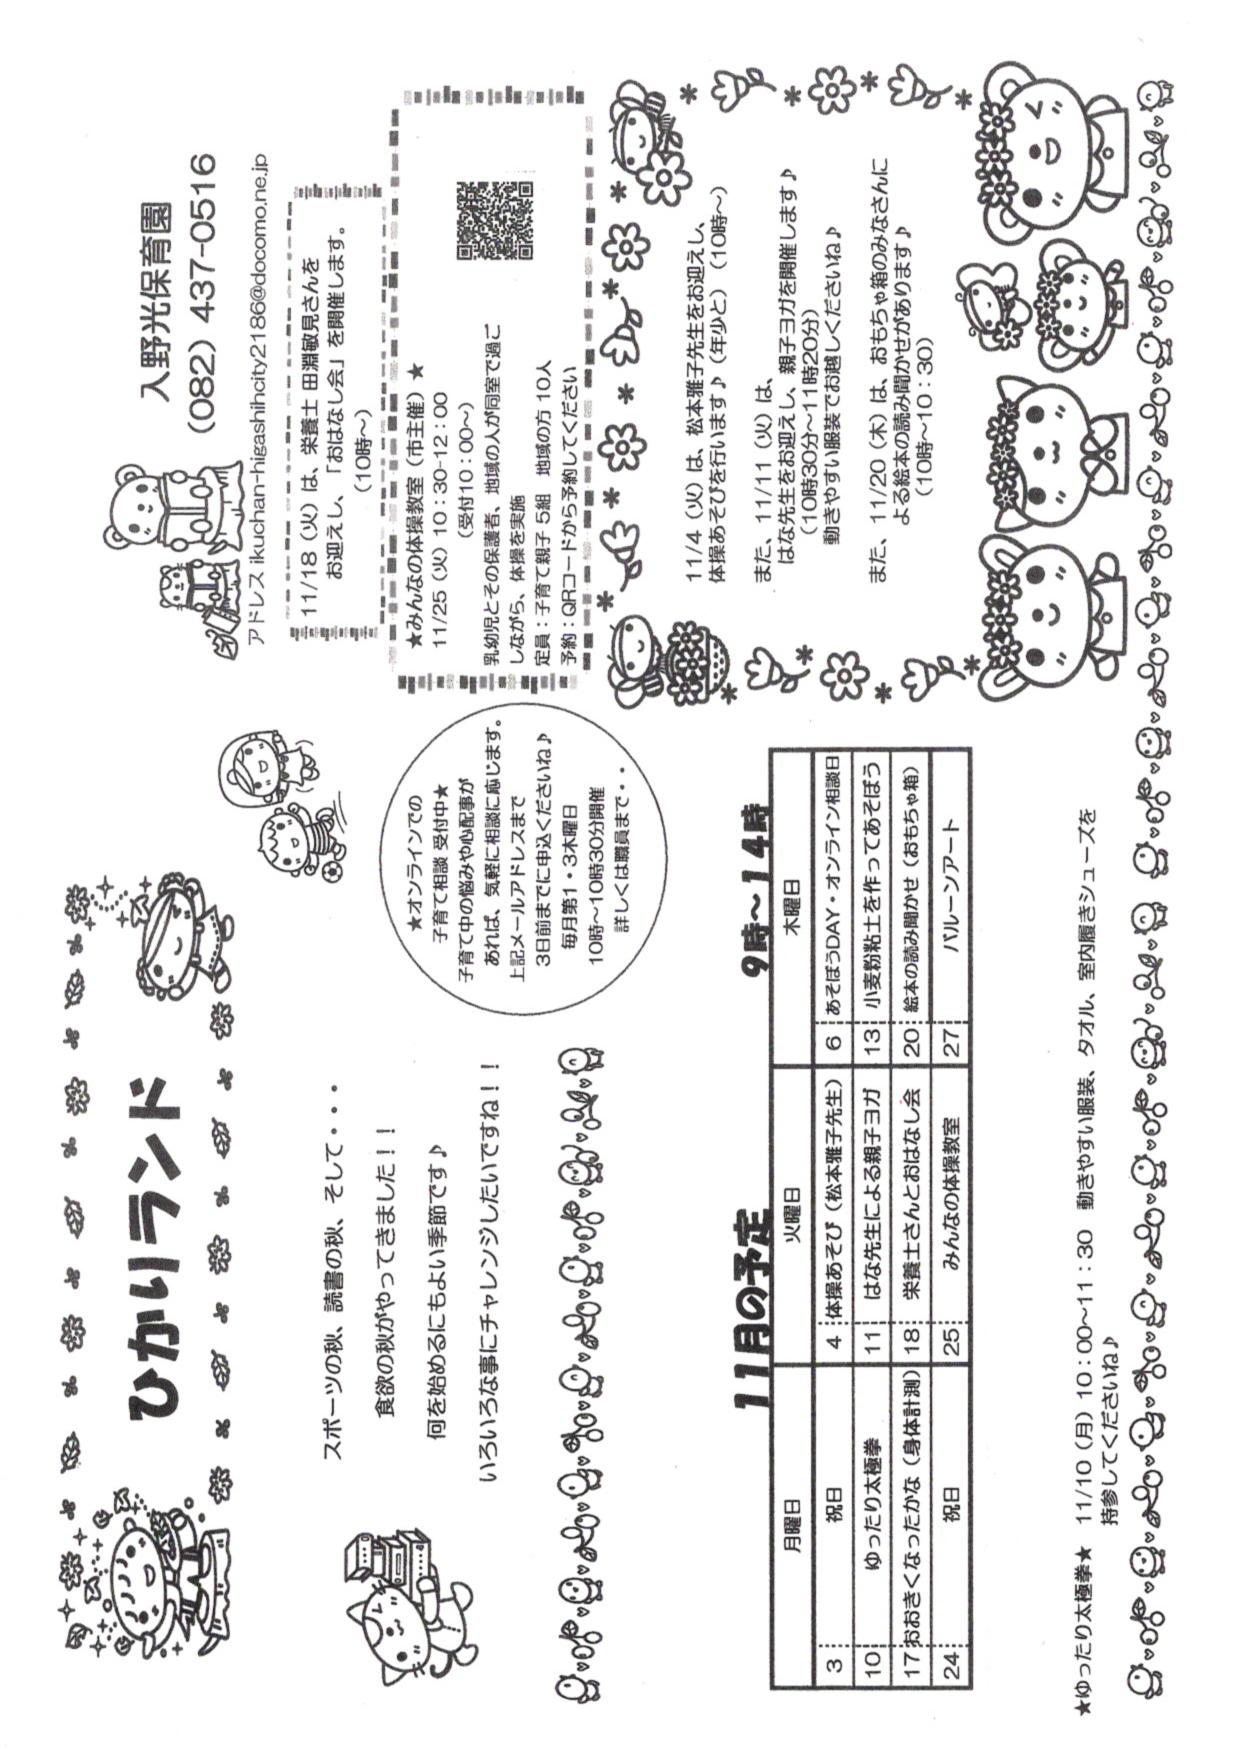 ひかりランド
入野光保育園
(082) 437-0516
アドレス ikuchan-higashihcity2186@docomo.ne.jp
スポーツの秋、読書の秋、そして・・・
食欲の秋がやってきました！！
何を始めるにもよい季節です♪
いろいろな事にチャレンジしたいですね！！
★オンラインでの
子育て相談 受付中★
子育て中の悩みや心配事が
あれば、気軽に相談に応じます。
上記メールアドレスまで
3日前までに申込くださいね♪
毎月第1・3木曜日
10時～10時30分開催
詳しくは職員まで・・
11/18（火）は、栄養士 田淵敏見さんを
お迎えし、「おはなし会」を開催します。
（10時～）
★みんなの体操教室（市主催）★
11/25（火）10：30-12：00
（受付10：00～）
乳幼児とその保護者、地域の人が同室で過ご
しながら、体操を実施
定員：子育て親子 5組　地域の方 10人
予約：QRコードから予約してください
11月の予定
9時～14時
月曜日 火曜日 木曜日
3 祝日 4 体操あそび（松本雅子先生） 6 あそぼうDAY・オンライン相談日
10 ゆったり太極拳 11 はな先生による親子ヨガ 13 小麦粉粘土を作ってあそぼう
17 おおきくなったかな（身体計測） 18 栄養士さんとおはなし会 20 絵本の読み聞かせ（おもちゃ箱）
24 祝日 25 みんなの体操教室 27 バルーンアート
11/4（火）は、松本雅子先生をお迎えし、
体操あそびを行います♪（年少と）（10時～）
また、11/11（火）は、
はな先生をお迎えし、親子ヨガを開催します♪
（10時30分～11時20分）
動きやすい服装でお越しくださいね♪
また、11/20（木）は、おもちゃ箱のみなさんに
よる絵本の読み聞かせがあります♪
（10時～10：30）
★ゆったり太極拳★　11/10（月）10：00～11：30　動きやすい服装、タオル、室内履きシューズを
持参してくださいね♪